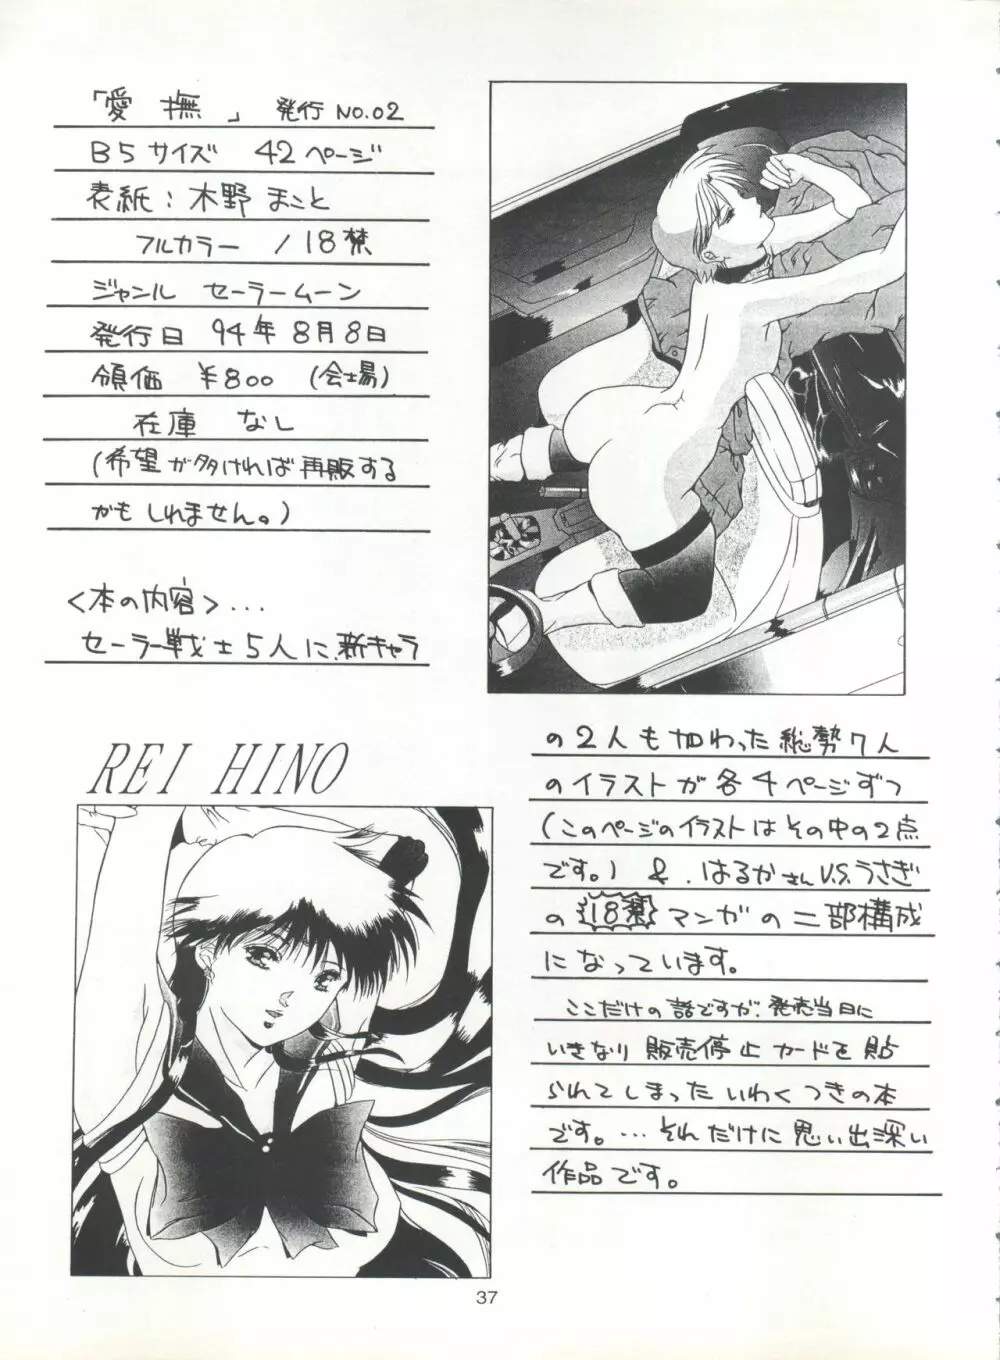 「愛撫」 発行 NO.02
B5サイズ 42ページ
表紙:木野まこと
フルカラー /18禁
ジャンル セーラームーン
発行日 94年8月8日
領価 ¥800 (会場)
在庫 なし
(希望が多ければ再販する
かもしれません。)
<本の内容>...
セーラー戦士5人に、新キャラ
の2人も加わった総勢7人
のイラストが各4ページずつ
(このページのイラストはその中の2点
です。) &.はるかさんV.S.うさぎ
の18禁マンガの二部構成
になっています。
ここだけの話ですが、発売当日に
いきなり販売停止カードを貼
られてしまったいわくつきの本
です。…それだけに思い出深い
作品です。
REI HINO
37